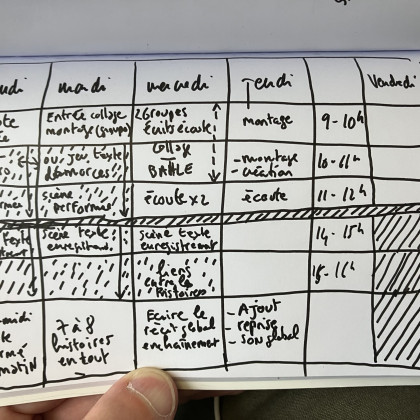 mardi
mercredi
Jeudi
Vendredi
Entrée collage
montage (groupe)
2 Groupes
Écrits écoute
montage
9-10h
ou jeu texte
d'amorces
collage
BATTLE
- montage
- création
10-11h
scène
performée
écoute x2
écoute
11-12h
scène texte
enregistrant.
scène texte
enregistrement
14-15h
liens
entre les
histoires
15-16h
7 à 8
histoires
en tout
Ecrire le
récit global
enchaînement
- Ajout
- reprise
- son global